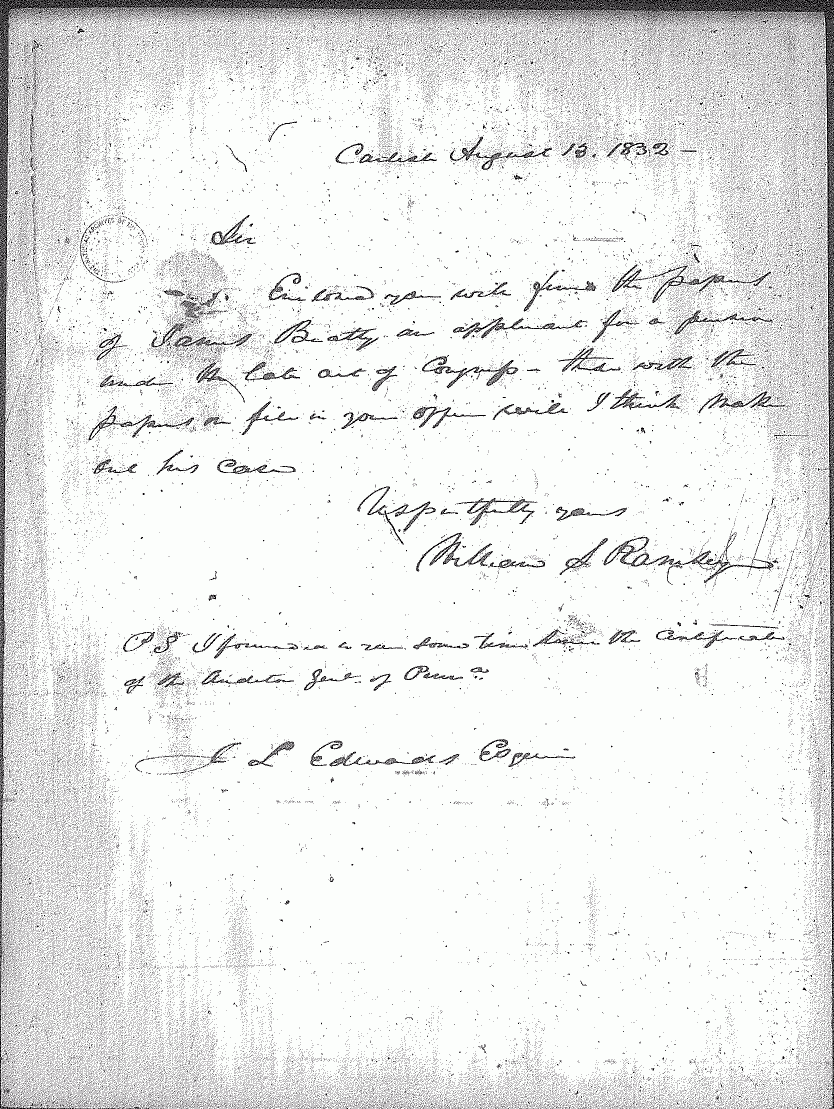 Carlisle August 13. 1832 -
Sir
Enclosed you will find the papers
of James Beatty an applicant for a pension
under the late act of Congress - this with the
papers on file in your office will I think make
out his case
Respectfully yours
William S Ramsey
PS I forwarded to you some time since the Certificate
of the Auditor Genl. of Penna.
J L Edwards Esquire